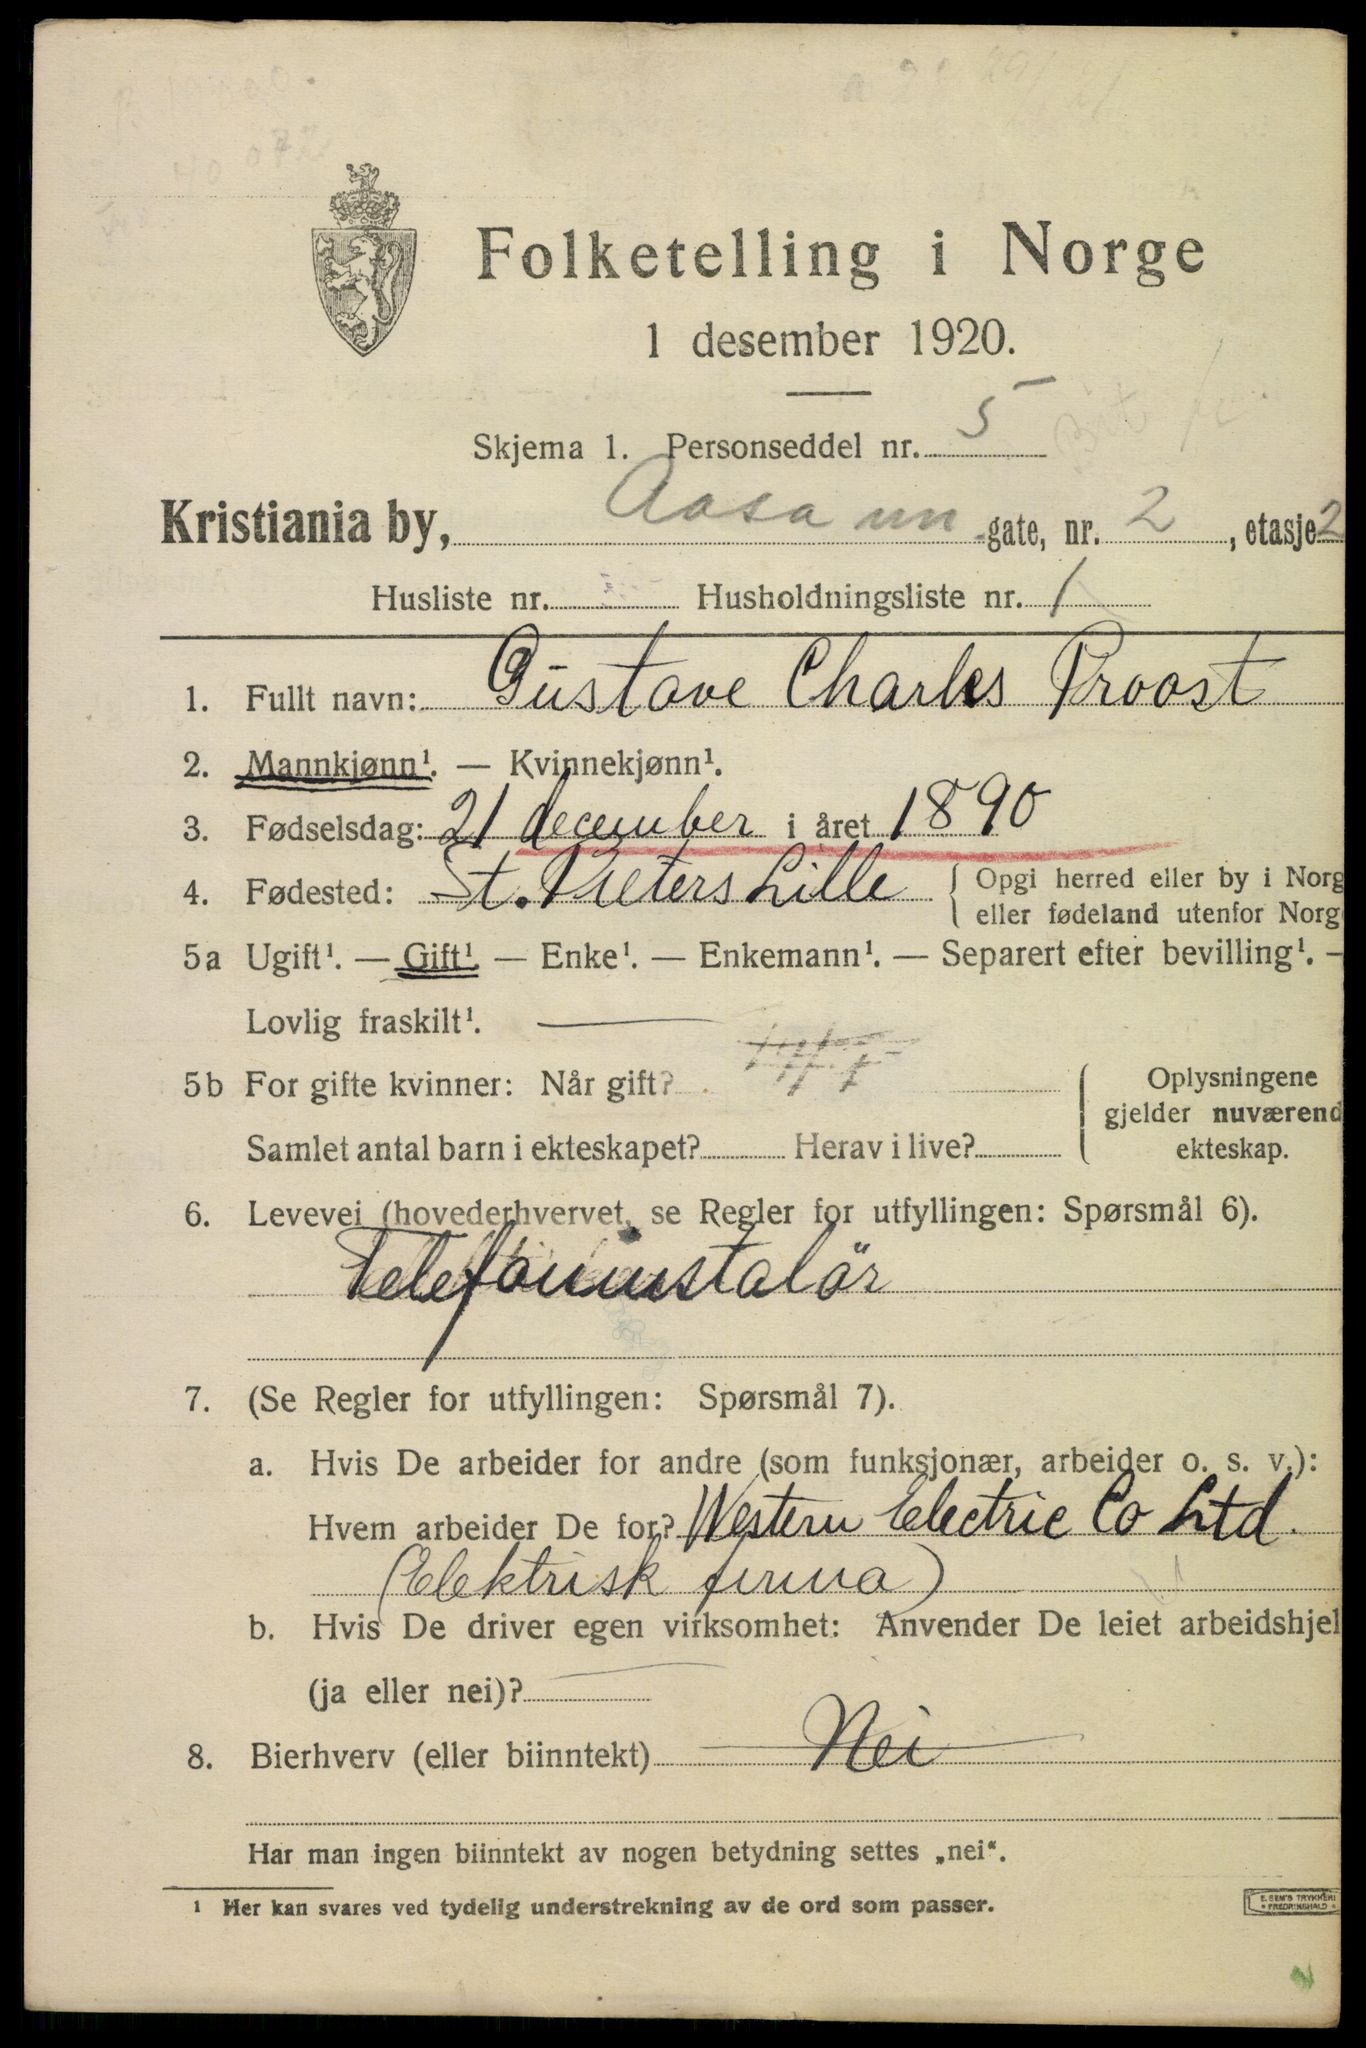 40 072
Folketelling i Norge
1 desember 1920.
Skjema 1. Personseddel nr. 5
Kristiania by, Aasaun gate, nr. 2, etasje 2
Husliste nr. Husholdningsliste nr. 1
1. Fullt navn: Gustave Charles Proost
2. Mannkjønn¹. — Kvinnekjønn¹.
3. Fødselsdag: 21 december i året 1890
4. Fødested: St. Pieters Lille { Opgi herred eller by i Norg
eller fødeland utenfor Norg
5a Ugift¹. — Gift¹. — Enke¹. — Enkemann¹. — Separert efter bevilling¹. —
Lovlig fraskilt¹.
5b For gifte kvinner: Når gift?
Samlet antal barn i ekteskapet? Herav i live?
Oplysningene
gjelder nuværend
ekteskap.
6. Levevei (hovederhvervet, se Regler for utfyllingen: Spørsmål 6).
Telefoninstalör
7. (Se Regler for utfyllingen: Spørsmål 7).
a. Hvis De arbeider for andre (som funksjonær, arbeider o. s. v.):
Hvem arbeider De for? Western Electric Co Ltd.
(Elektrisk firma)
b. Hvis De driver egen virksomhet: Anvender De leiet arbeidshjel
(ja eller nei)?
8. Bierhverv (eller biinntekt) Nei
Har man ingen biinntekt av nogen betydning settes „nei“.
¹ Her kan svares ved tydelig understrekning av de ord som passer.
E. SEM'S TRYKKERI
FREDRIKSHALD